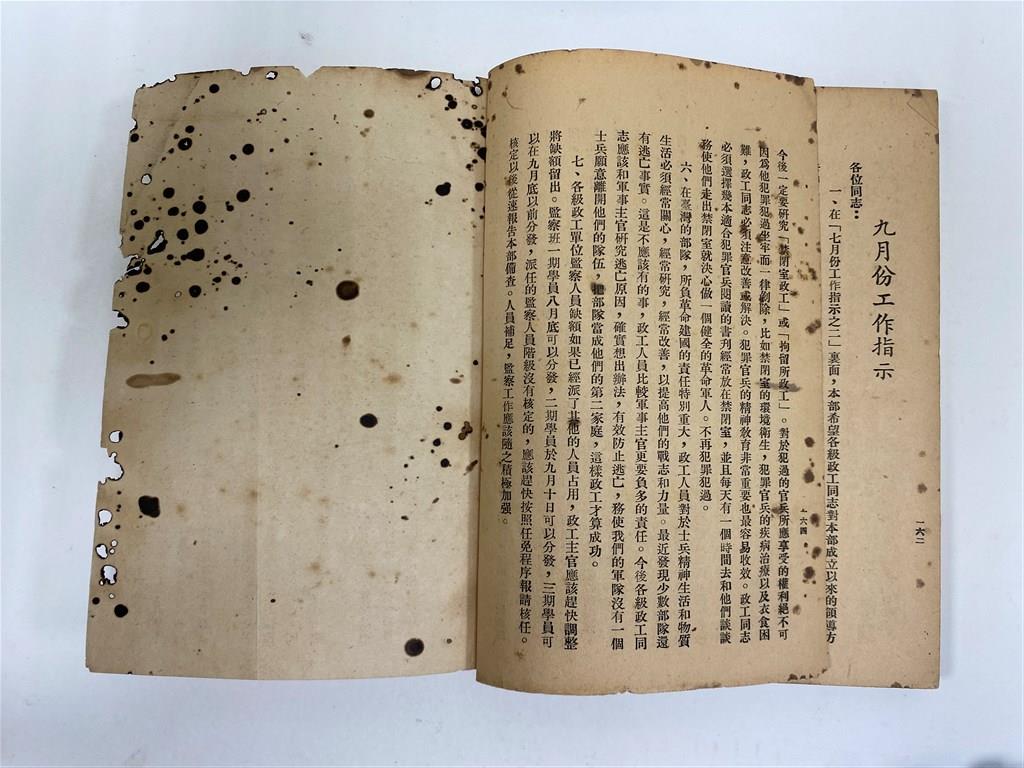 九月份工作指示
各位同志：
一、在「七月份工作指示之二」裏面，本部希望各級政工同志對本部成立以來的領導方
一六二
今後一定要研究「禁閉室政工」或「拘留所政工」。對於犯過的官兵所應享受的權利絕不可
因爲他犯罪犯過坐牢而一律剝除，比如禁閉室的環境衛生，犯罪官兵的疾病治療以及衣食困
難，政工同志必須注意改善或解決。犯罪官兵的精神敎育非常重要也最容易收效。政工同志
必須選擇幾本適合犯罪官兵閱讀的書刊經常放在禁閉室，並且每天有一個時間去和他們談談
務使他們走出禁閉室就決心做一個健全的革命軍人。不再犯罪犯過。
六、在臺灣的部隊，所負革命建國的責任特別重大，政工人員對於士兵精神生活和物質
生活必須經常關心，經常研究，經常改善，以提高他們的戰志和力量。最近發現少數部隊還
有逃亡事實。這是不應該有的事，政工人員比較軍事主官更要負多的責任。今後各級政工同
志應該和軍事主官研究逃亡原因，確實想出辦法，有效防止逃亡，務使我們的軍隊沒有一個
士兵願意離開他們的隊伍，把部隊當成他們的第二家庭，這樣政工才算成功。
七、各級政工單位監察人員缺額如果已經派了其他的人員占用，政工主官應該趕快調整
將缺額留出。監察班一期學員八月底可以分發，二期學員於九月十日可以分發，三期學員可
以在九月底以前分發，派任的監察人員階級沒有核定的，應該趕快按照任免程序報請核任。
核定以後從速報告本部備查。人員補足，監察工作應該隨之積極加强。
一六四